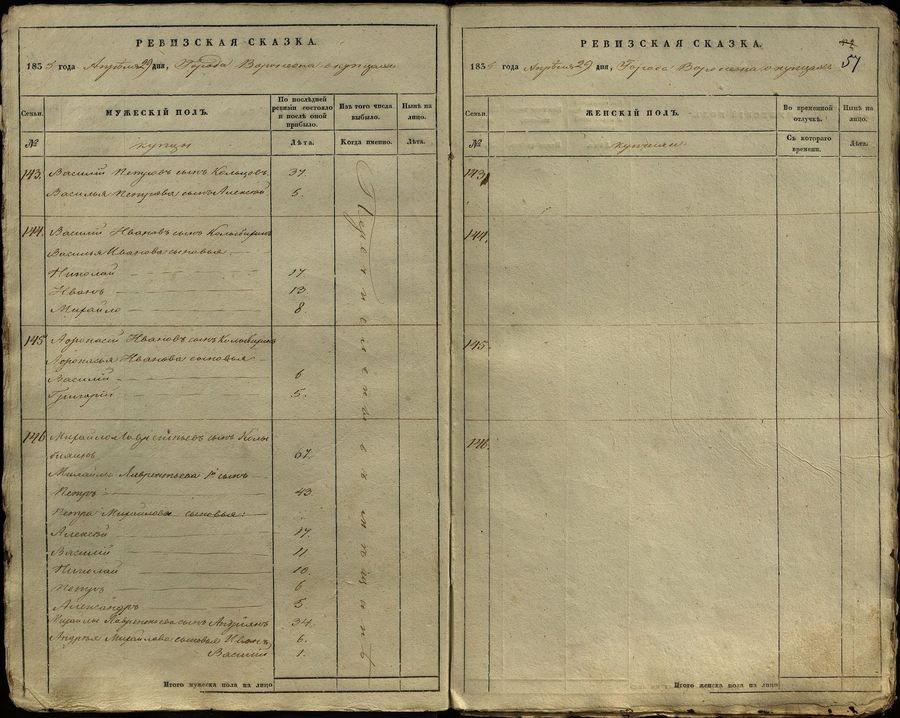 РЕВИЗСКАЯ СКАЗКА.
1835 года Апреля 29 дня, Города Воронежа о купцахъ
Семьи.
МУЖЕСКІЙ ПОЛЪ.
По послѣдней ревизіи состояло и послѣ оной прибыло.
Изъ того числа выбыло.
Нынѣ на лицо.
№
купцы
Лѣта.
Когда именно.
Лѣта.
143. Василій Петровъ сынъ Кольцовъ 37.
Василья Петрова сынъ Алексѣй 5.
144. Василій Ивановъ сынъ
Василья Иванова сыновья
Николай 17.
Иванъ 13
Михайло 8
145 Афонасій Ивановъ сынъ
Афонасья Иванова сыновья
Василій 6
Григорій 5.
146 Михайло Лаврентьевъ сынъ
67.
Михайлы Лаврентьева 1й сынъ
Петръ 43.
Петра Михайлова сыновья:
Алексѣй 17.
Василій 11
Николай 10.
Петръ 6
Александръ 5
Михайлы Лаврентьева сынъ Андреянъ 34.
Михайлова сыновья Иванъ 6.
Василій 1.
Итого мужеска пола на лицо
РЕВИЗСКАЯ СКАЗКА.
51
1835 года Апреля 29 дня, Города Воронежа о купцахъ
Семьи.
ЖЕНСКІЙ ПОЛЪ.
Во временной отлучкѣ.
Нынѣ на лицо.
№
Съ котораго времени.
Лѣта.
143
144.
145.
146.
Итого женска пола на лицо